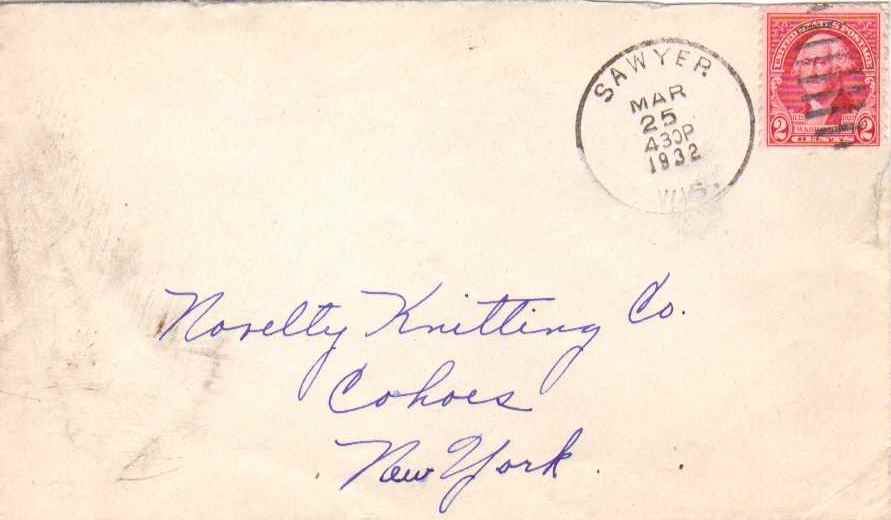 SAWYER
MAR
25
430P
1932
WIS.
UNITED STATES POSTAGE
2 2
CENTS
Novelty Knitting Co.
Cohoes
New York.